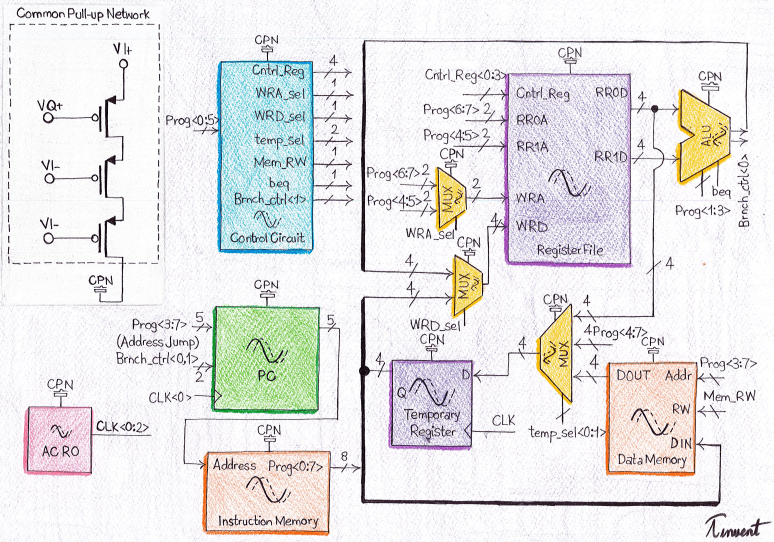 Common Pull-up Network
VI+
VQ+
VI-
VI-
CPN
CPN
Prog<0:5>
Cntrl_Reg
4
WRA_sel
1
WRD_sel
1
temp_sel
2
Mem_RW
1
beq
1
Brnch_ctrl<1>
1
Control Circuit
CPN
Cntrl_Reg<0:3>
4
Cntrl_Reg
RR0D
4
Prog<6:7>
2
RR0A
Prog<4:5>
2
RR1A
RR1D
4
WRA
WRD
Register File
CPN
Prog<6:7>
2
Prog<4:5>
2
MUX
2
WRA_sel
CPN
4
4
MUX
4
WRD_sel
CPN
ALU
beq
Prog<1:3>
Brnch_ctrl<0>
4
CPN
Prog<3:7>
5
(Address Jump)
Brnch_ctrl<0,1>
2
CLK<0>
PC
5
CPN
ACRO
CLK<0:2>
CPN
Address
Prog<0:7>
8
Instruction Memory
CPN
4
D
Q
Temporary
Register
CLK
4
CPN
MUX
4
4
Prog<4:7>
4
temp_sel<0:1>
CPN
DOUT
Addr
Prog<3:7>
Mem_RW
RW
DIN
Data Memory